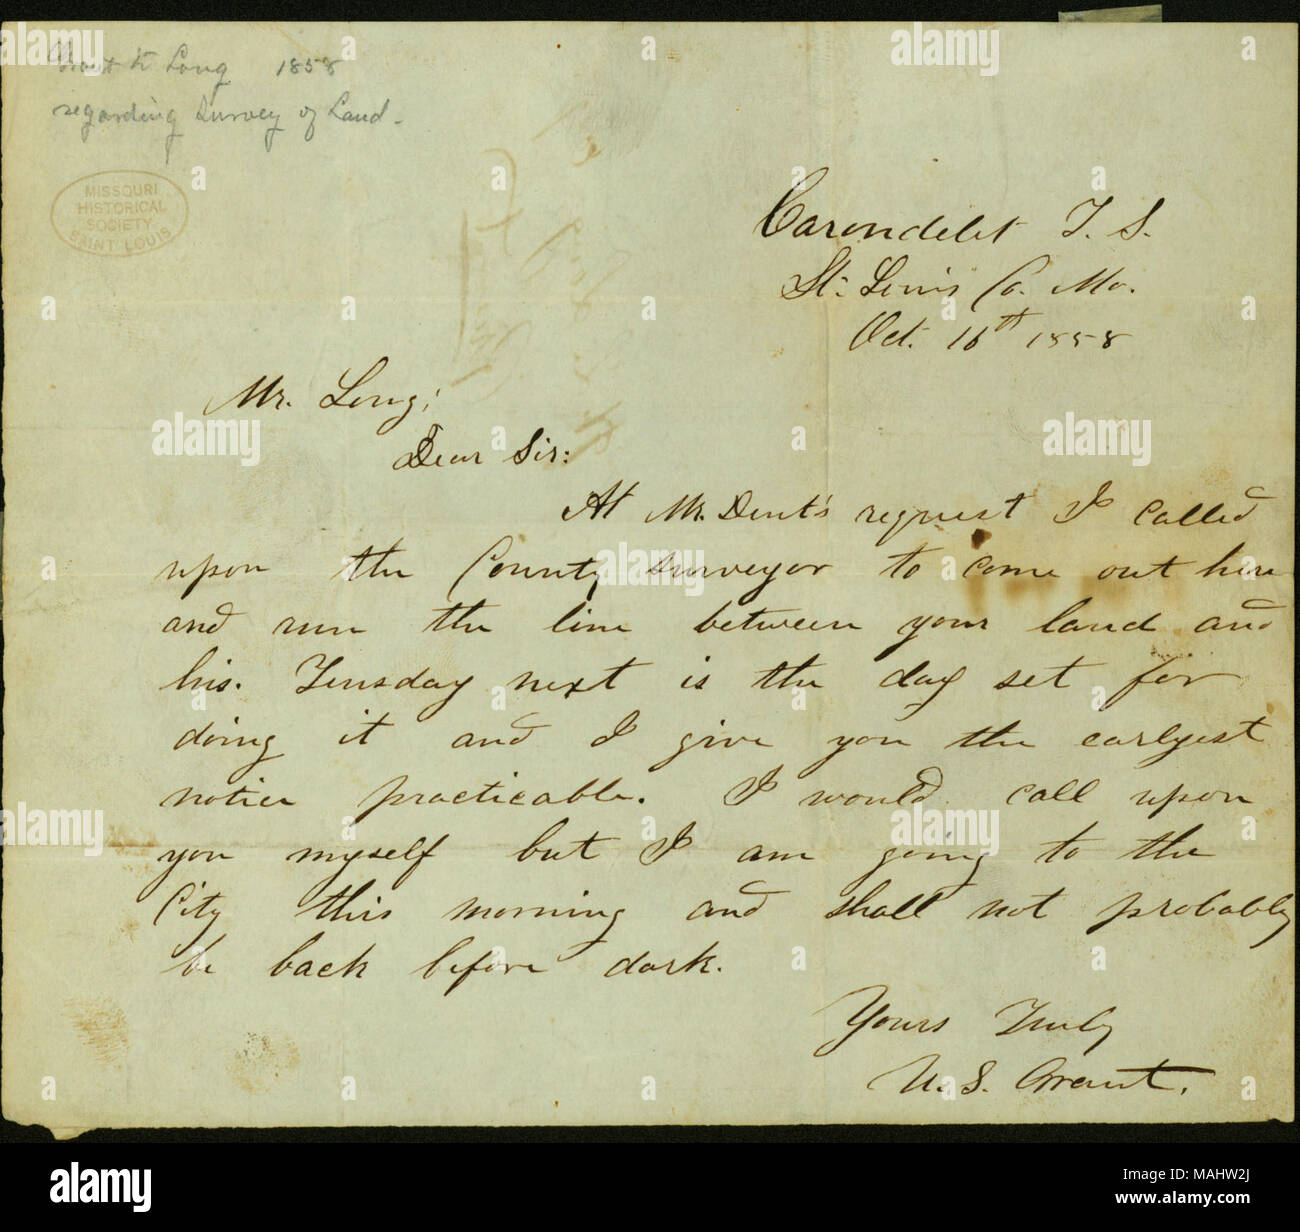 Grant to Long 1858
regarding Survey of Land-
MISSOURI
HISTORICAL
SOCIETY
SAINT LOUIS
Carondelet T. S.
St. Louis Co. Mo.
Oct. 16th 1858
Mr. Long;
Dear Sir:
At Mr. Dent's request I called
upon the County surveyor to come out here
and run the line between your land and
his. Tuesday next is the day set for
doing it and I give you the earlyest
notice practicable. I would call upon
you myself but I am going to the
City this morning and shall not probably
be back before dark.
Yours Truly
U. S. Grant.
alamy
Image ID: MAHW2J
www.alamy.com